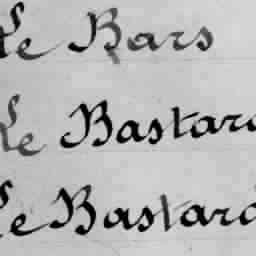 Le Bars
Le Bastard
Le Bastard